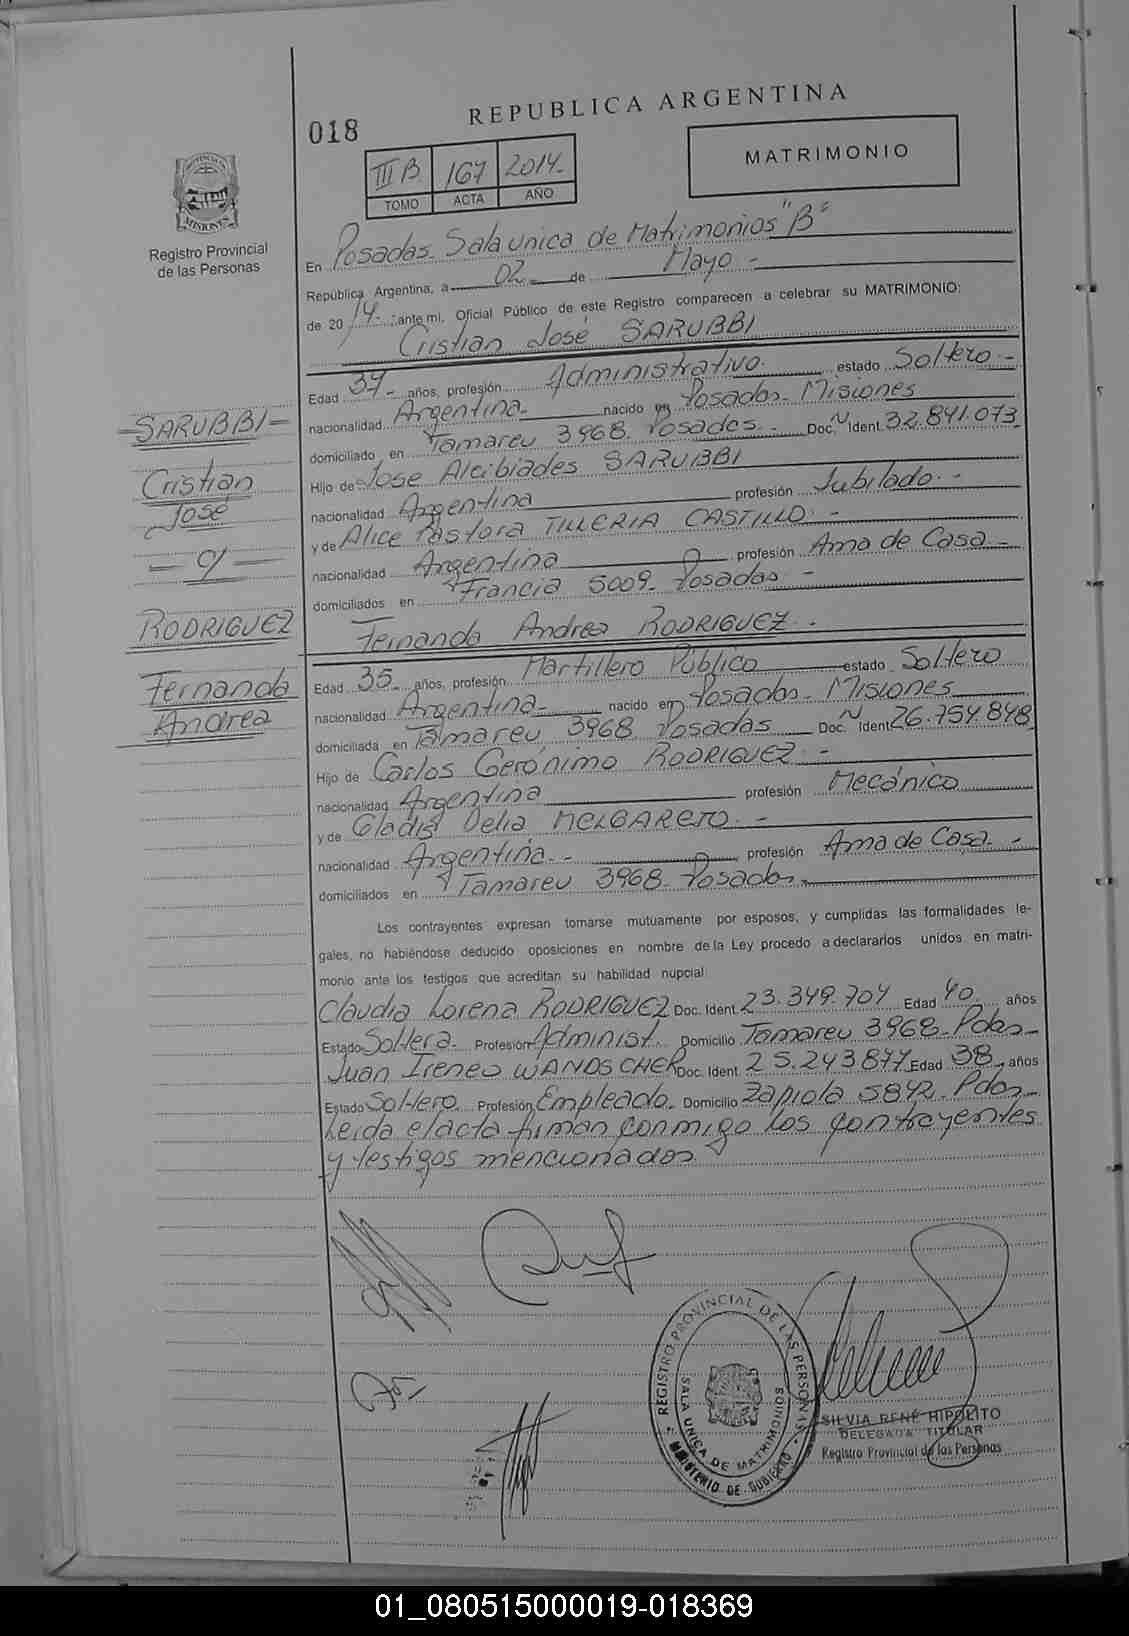 REPUBLICA ARGENTINA
018
III B 167 2014.-
TOMO ACTA AÑO
MATRIMONIO
PROVINCIA DE MISIONES
Registro Provincial
de las Personas
En Posadas. Sala unica de Matrimonios "B"
República Argentina, a 02 de Mayo -
de 2014.- ;ante mi, Oficial Público de este Registro comparecen a celebrar su MATRIMONIO:
Cristian José SARUBBI
Edad 37- años, profesión Administrativo. estado Soltero.-
nacionalidad Argentina. nacido en Posadas. Misiones
domiciliado en Tamareu 3968. Posadas.- Doc. Ident. 32.841.073
Hijo de Jose Alcibiades SARUBBI
nacionalidad Argentina profesión Jubilado.-
y de Alice Pastora TILLERIA CASTILLO.-
nacionalidad Argentina profesión Ama de Casa.-
domiciliados en Francia 5009. Posadas.-
Fernanda Andrea RODRIGUEZ.
Edad 35- años, profesión Martillero Público estado Soltero
nacionalidad Argentina- nacido en Posadas- Misiones
domiciliada en Tamareu 3968 Posadas Doc. Ident. 26.754.848
Hijo de Carlos Gerónimo RODRIGUEZ.-
nacionalidad Argentina profesión Mecánico
y de Gladis Delia MELGAREJO.-
nacionalidad Argentina.- profesión Ama de Casa.-
domiciliados en Tamareu 3968. Posadas.
SARUBBI
Cristian
José
- y -
RODRIGUEZ
Fernanda
Andrea
Los contrayentes expresan tomarse mutuamente por esposos, y cumplidas las formalidades le-
gales, no habiéndose deducido oposiciones en nombre de la Ley procedo a declararlos unidos en matri-
monio ante los testigos que acreditan su habilidad nupcial
Claudia Lorena RODRIGUEZ Doc. Ident. 23.349.704 Edad 40. años
Estado Soltera. Profesión Administ. Domicilio Tamareu 3968. Pdas-
Juan Ireneo WANDSCHER Doc. Ident. 25.243.877 Edad 38 años
Estado Soltero. Profesión Empleado. Domicilio Zapiola 5842. Pdas
Leida el acta firman conmigo los contrayentes
y testigos mencionados
REGISTRO PROVINCIAL DE LAS PERSONAS
SALA UNICA DE MATRIMONIOS
MINISTERIO DE GOBIERNO
SILVIA RENÉ HIPOLITO
DELEGADA TITULAR
Registro Provincial de las Personas
01_080515000019-018369